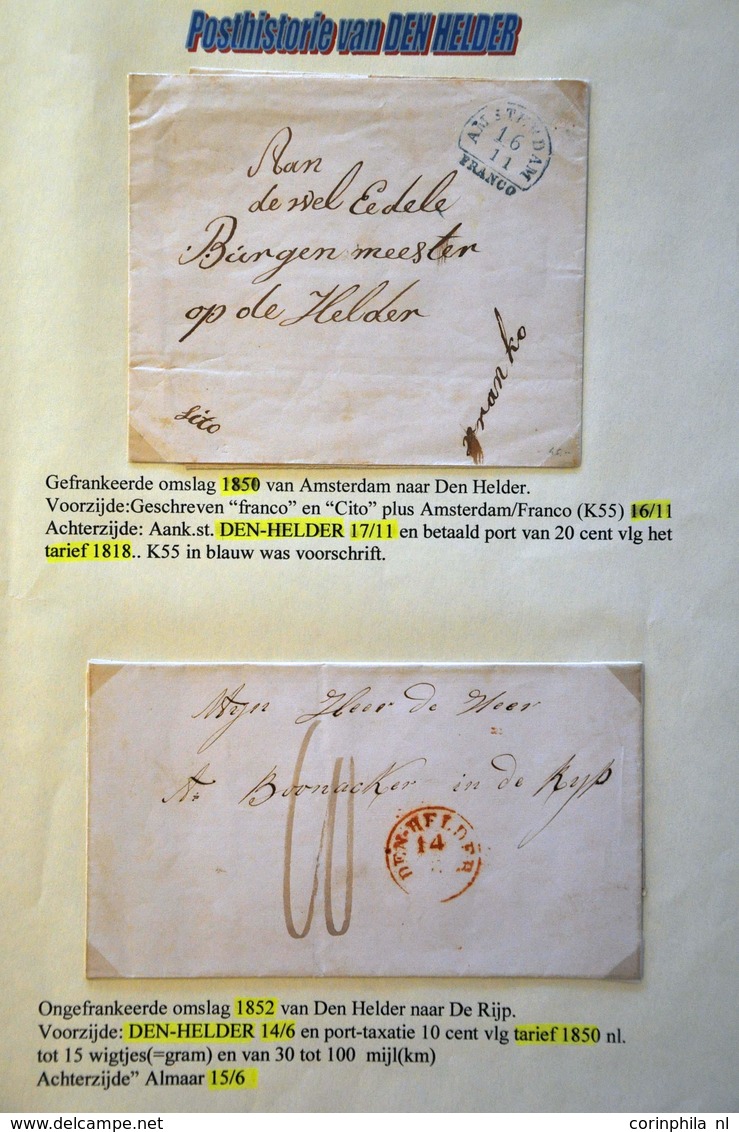 Posthistorie van DEN HELDER
AMSTERDAM
16
11
FRANCO
Aan
de wel Eedele
Burgenmeester
op de Helder
franko
Cito
Gefrankeerde omslag 1850 van Amsterdam naar Den Helder.
Voorzijde:Geschreven “franco” en “Cito” plus Amsterdam/Franco (K55) 16/11
Achterzijde: Aank.st. DEN-HELDER 17/11 en betaald port van 20 cent vlg het
tarief 1818.. K55 in blauw was voorschrift.
Mijn Heer de Heer
A: Boonacker in de Ryp
DEN-HELDER
14
Ongefrankeerde omslag 1852 van Den Helder naar De Rijp.
Voorzijde: DEN-HELDER 14/6 en port-taxatie 10 cent vlg tarief 1850 nl.
tot 15 wigtjes(=gram) en van 30 tot 100 mijl(km)
Achterzijde” Almaar 15/6
corinphila nl